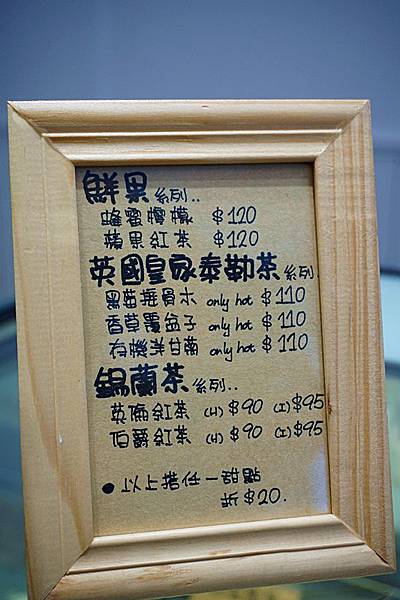 鮮果系列..
蜂蜜檸檬 $120
蘋果紅茶 $120
英國皇家泰勒茶系列
黑莓接骨木 only hot $110
香草覆盆子 only hot $110
有機洋甘菊 only hot $110
錫蘭茶系列..
英倫紅茶 (H) $90 (I) $95
伯爵紅茶 (H) $90 (I) $95
●以上搭任一甜點
折$20.